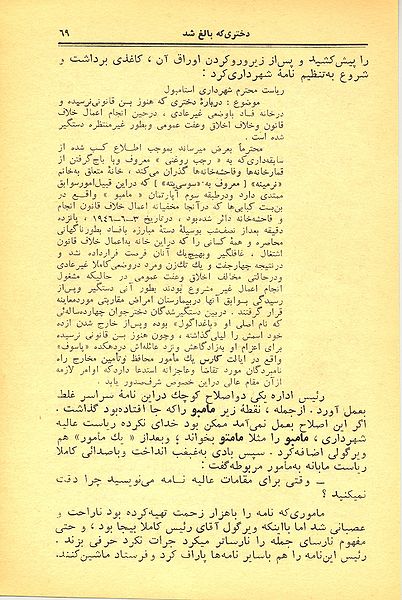 دختری‌که بالغ شد ۶۹
را پیش‌کشید و پس‌از زیروروکردن اوراق آن ، کاغذی برداشت و
شروع به‌تنظیم نامهٔ شهرداری‌کرد :
ریاست محترم شهرداری استامبول
موضوع : دربارهٔ دختری که هنوز بسن قانونی‌نرسیده و
درخانه فساد باوضعی غیرعادی ، درحین انجام اعمال خلاف
قانون وخلاف اخلاق وعفت عمومی وبطور غیرمنتظره دستگیر
شده است .
محترماً بعرض میرساند بموجب اطلاع کسب شده از
سابقه‌داری‌که به « رجب روغنی » معروف وبا باج‌گرفتن از
قمارخانه‌ها وفاحشه‌خانه‌ها گذران می‌کند ، خانهٔ متعلق به‌خانم
«نرمینه» [ معروف به «سوسی‌یته» ] که دراین قبیل‌امورسوابق
مبتدی دارد ودرطبقه سوم آپارتمان « مامبو » واقع در
بن‌بست کبابی‌ها که‌درآنجا مخفیانه اعمال خلاف قانون انجام
و فاحشه‌خانه دائر شده‌بود ، درتاریخ ۳–۶–۱۹۴۶ ، پانزده
دقیقه بعداز نصف‌شب بوسیلهٔ دستهٔ مبارزه بافساد بطورناگهانی
محاصره و همهٔ کسانی را که دراین خانه به‌اعمال خلاف قانون
اشتغال . غافلگیر وبهیچ‌یک آنان فرصت فرارداده نشد و
درنتیجه چهارجفت و یك‌تك‌زن ومرد دروضعی‌کاملا غیرعادی
ودرحالتی مخالف اخلاق وعفت عمومی در حالیکه مشغول
انجام اعمال غیر مشروع بودند بطور آنی دستگیر وپس‌از
رسیدگی بسوابق آنها دربیمارستان امراض مقاربتی موردمعاینه
قرار گرفتند . دربین دستگیرشدگان دخترجوان چهارده‌ساله‌ئی
که نام اصلی او «باغداگول» بوده وپس‌از خارج شدن ازده
خود اسمش را لیلی‌گذاشته ، وچون هنوز بسن قانونی نرسیده
برای اعزام او به‌زادگاهش ونزد عائله‌اش دردهکده «یاسوف»
واقع در ایالت کارس یك مأمور محافظ وتأمین مخارج راه
نامبردگان مورد تقاضا وعاجزانه استدعا داردکه اوامر لازمه
ازآن مقام عالی دراین خصوص شرف‌صدور یابد .
رئیس اداره یکی دواصلاح کوچك دراین نامهٔ سراسر غلط
بعمل آورد . ازجمله ، نقطهٔ زیر مامبو راکه جا افتاده‌بود گذاشت .
اگر این اصلاح بعمل نمی‌آمد ممکن بود خدای نکرده ریاست عالیه
شهرداری ، مامبو را مثلا مامتو بخواند ، وبعداز « یك مأمور» هم
ویرگولی اضافه‌کرد . سپس بادی به‌غبغب انداخت وباصدائی کاملا
ریاست مابانه به‌مأمور مربوطه‌گفت :
— وقتی برای مقامات عالیه نامه می‌نویسید چرا دقت
نمیکنید ؟
ماموری‌که نامه را باهزار زحمت تهیه‌کرده بود ناراحت و
عصبانی شد اما بااینکه ویرگول آقای رئیس کاملا بیجا بود ، و حتی
مفهوم نارسای جمله را نارساتر میکرد جرات نکرد حرفی بزند .
رئیس این‌نامه را هم باسایر نامه‌ها پاراف کرد و فرستاد ماشین‌کنند.